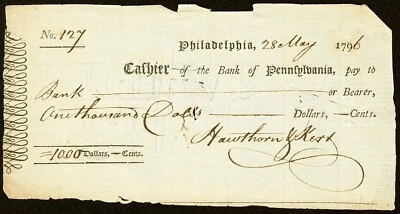 No. 127
Philadelphia, 28 May 1796
Cashier of the Bank of Pennsylvania, pay to
Bank or Bearer,
One thousand Dolls Dollars, —Cents.
Hawthorn & Kerr
=1000 Dollars, —Cents.